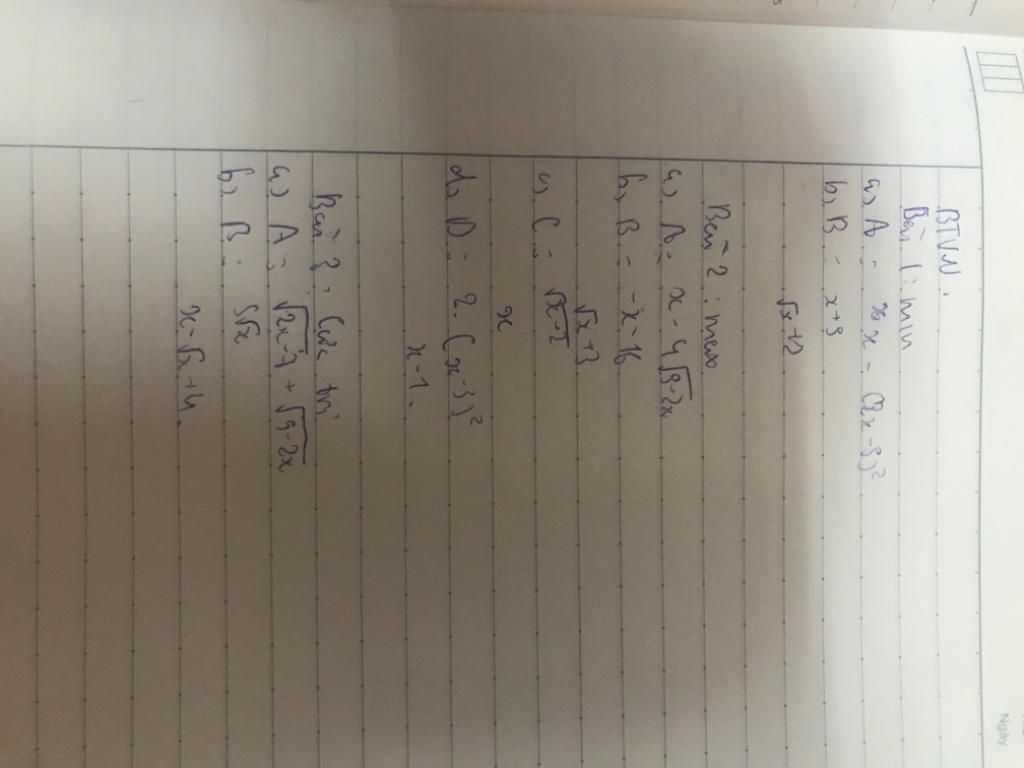 BTVN:
Bài 1: min
a) A = x - (2x-9)²
b) B = x+9
√x+2
Bài 2: max
a) A = x - 4√9-2x
b) B = -x-16
√x+3
c) C = √x-2
x
d) D = 2-(x-3)²
x-1.
Bài 3: Cực trị
a) A = √2x-7 + √9-2x
b) B = 5√x
x-√x+4
Ngày